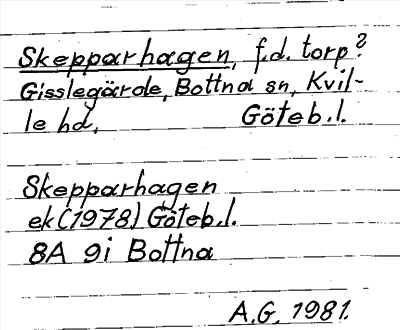 Skepparhagen, f.d. torp?
Gisslegärde, Bottna sn, Kvil-
le hd, Göteb.l.
Skepparhagen
ek (1978) Göteb.l.
8A 9i Bottna
A.G. 1981.